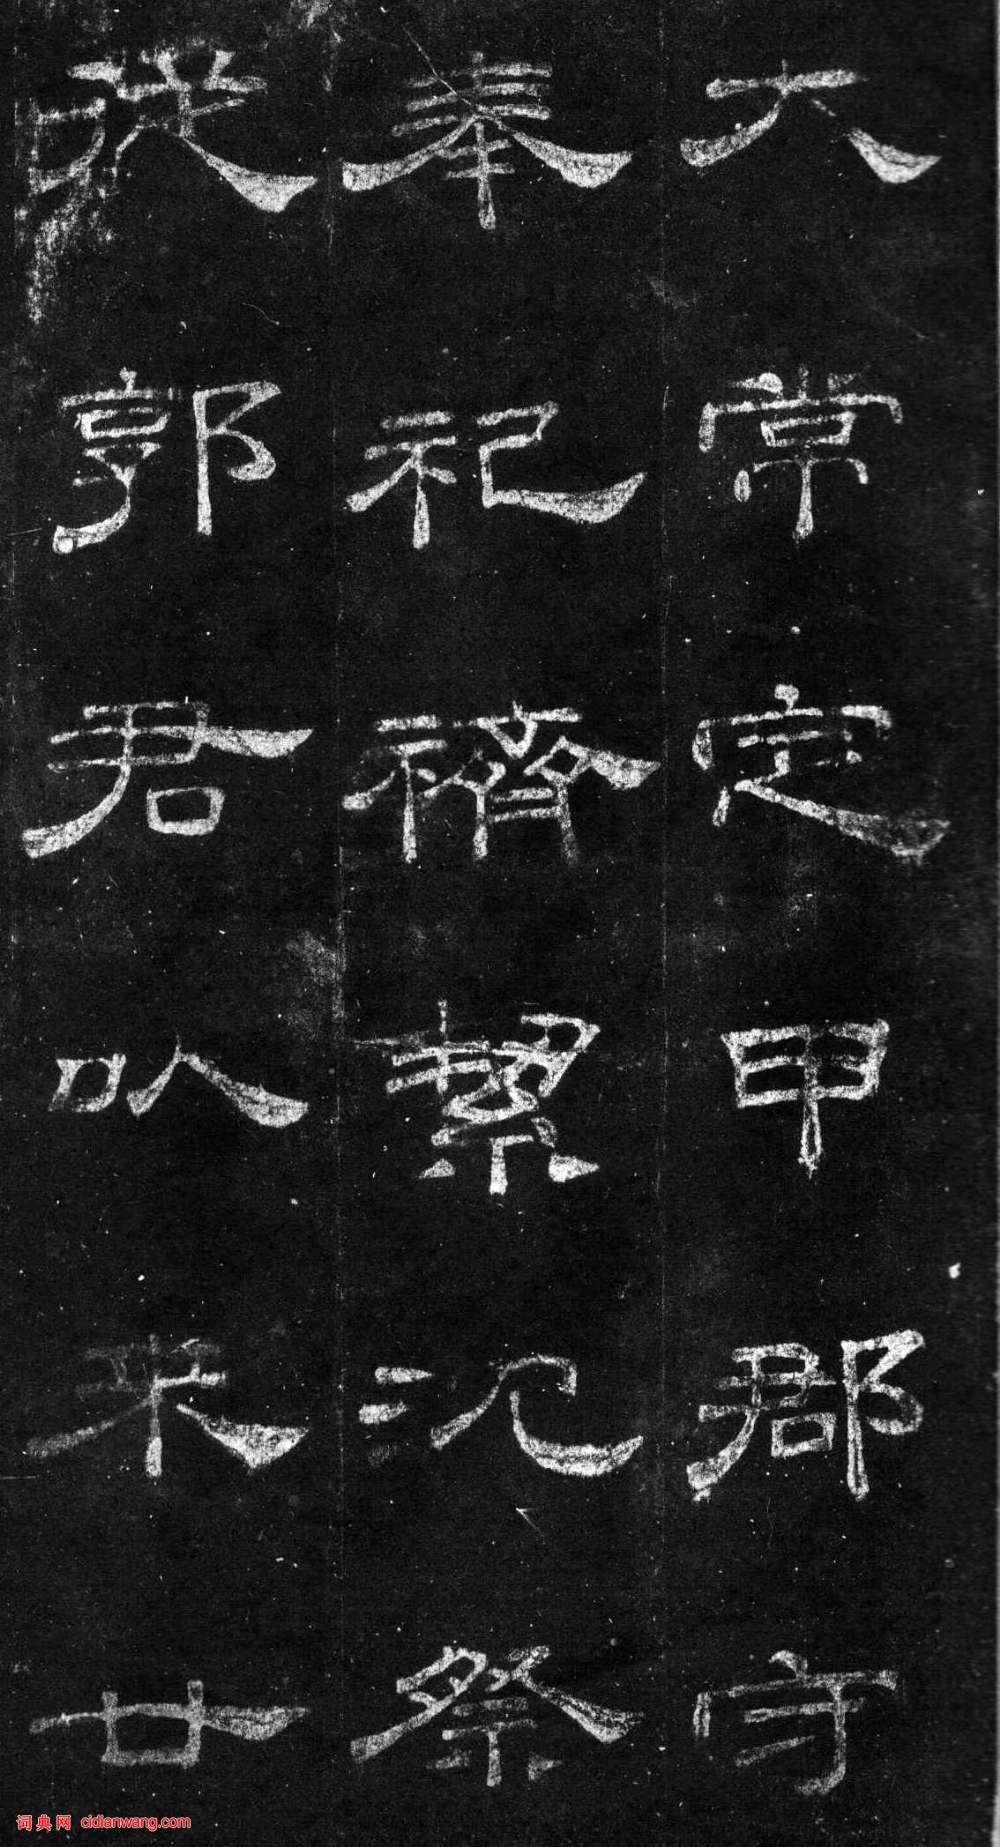 大常定甲郡守
奉祀禴絜沉祭
從郭君以来廿
词典网 cidianwang.com